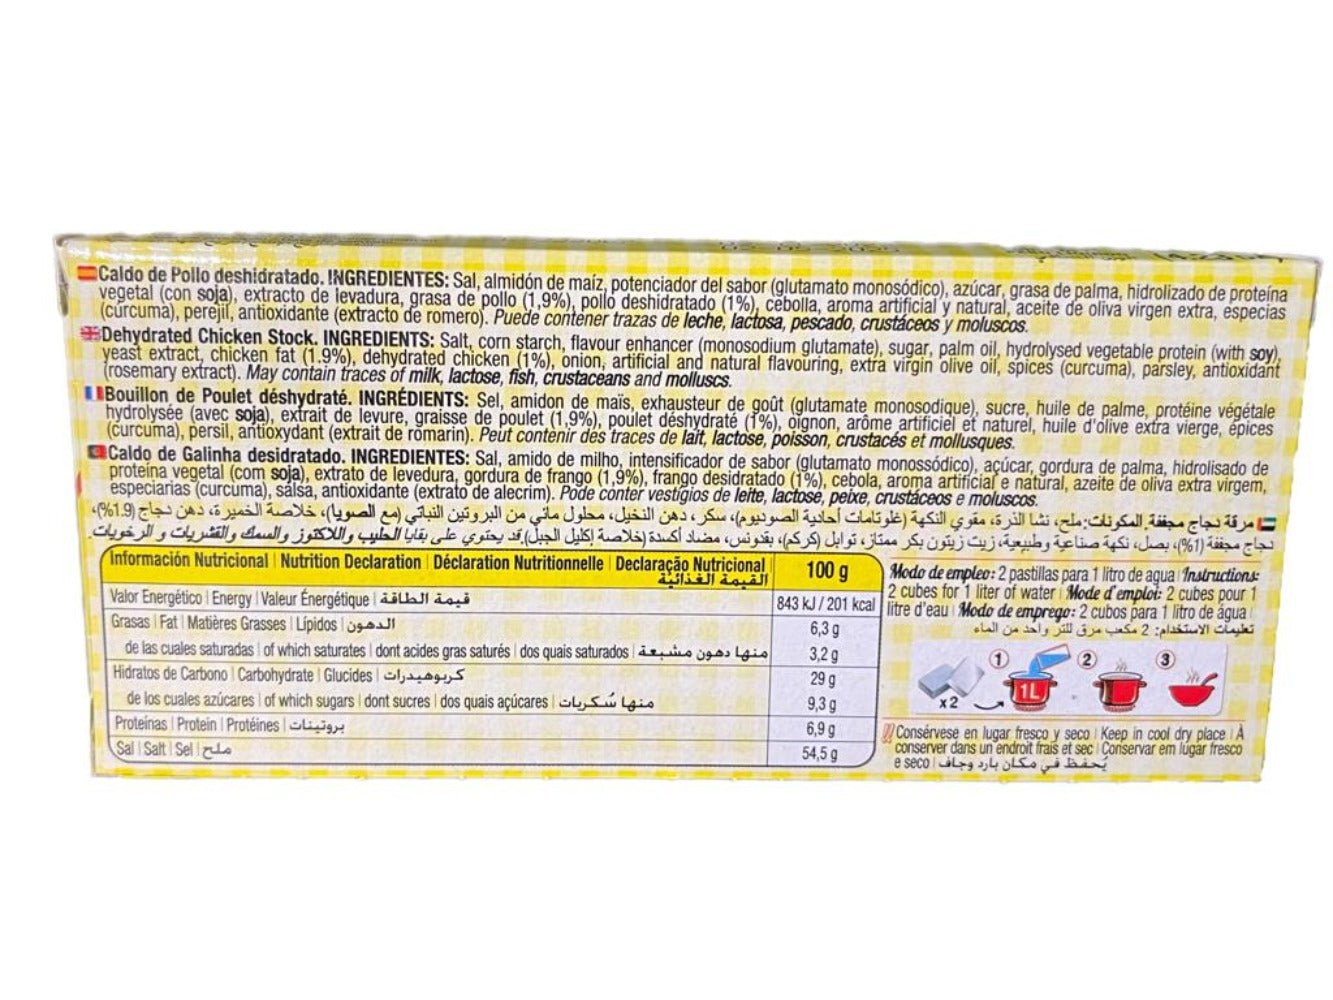 Caldo de Pollo deshidratado. INGREDIENTES: Sal, almidón de maíz, potenciador del sabor (glutamato monosódico), azúcar, grasa de palma, hidrolizado de proteína
vegetal (con soja), extracto de levadura, grasa de pollo (1,9%), pollo deshidratado (1%), cebolla, aroma artificial y natural, aceite de oliva virgen extra, especias
(cúrcuma), perejil, antioxidante (extracto de romero). Puede contener trazas de leche, lactosa, pescado, crustáceos y moluscos.
Dehydrated Chicken Stock. INGREDIENTS: Salt, corn starch, flavour enhancer (monosodium glutamate), sugar, palm oil, hydrolysed vegetable protein (with soy),
yeast extract, chicken fat (1.9%), dehydrated chicken (1%), onion, artificial and natural flavouring, extra virgin olive oil, spices (curcuma), parsley, antioxidant
(rosemary extract). May contain traces of milk, lactose, fish, crustaceans and molluscs.
Bouillon de Poulet déshydraté. INGRÉDIENTS: Sel, amidon de maïs, exhausteur de goût (glutamate monosodique), sucre, huile de palme, protéine végétale
hydrolysée (avec soja), extrait de levure, graisse de poulet (1,9%), poulet déshydraté (1%), oignon, arôme artificiel et naturel, huile d'olive extra vierge, épices
(curcuma), persil, antioxydant (extrait de romarin). Peut contenir des traces de lait, lactose, poisson, crustacés et mollusques.
Caldo de Galinha desidratado. INGREDIENTES: Sal, amido de milho, intensificador de sabor (glutamato monossódico), açúcar, gordura de palma, hidrolisado de
proteína vegetal (com soja), extrato de levedura, gordura de frango (1,9%), frango desidratado (1%), cebola, aroma artificial e natural, azeite de oliva extra virgem,
especiarias (curcuma), salsa, antioxidante (extrato de alecrim). Pode conter vestígios de leite, lactose, peixe, crustáceos e moluscos.
مرقة دجاج مجففة. المكونات: ملح، نشا الذرة، مقوي النكهة (غلوتامات أحادية الصوديوم)، سكر، دهن النخيل، محلول مائي من البروتين النباتي (مع الصويا)، خلاصة الخميرة، دهن دجاج (1.9%)،
دجاج مجففة (1%)، بصل، نكهة صناعية وطبيعية، زيت زيتون بكر ممتاز، توابل (كركم)، بقدونس، مضاد أكسدة (خلاصة إكليل الجبل). قد يحتوي على بقايا الحليب واللاكتوز والسمك والقشريات والرخويات.
Información Nutricional | Nutrition Declaration | Déclaration Nutritionnelle | Declaração Nutricional
القيمة الغذائية
100 g
Valor Energético | Energy | Valeur Énergétique | قيمة الطاقة 843 kJ / 201 kcal
Grasas | Fat | Matières Grasses | Lípidos | الدهون 6,3 g
de las cuales saturadas | of which saturates | dont acides gras saturés | dos quais saturados | منها دهون مشبعة 3,2 g
Hidratos de Carbono | Carbohydrate | Glucides | كربوهيدرات 29 g
de los cuales azúcares | of which sugars | dont sucres | dos quais açúcares | منها سُكريات 9,3 g
Proteínas | Protein | Protéines | بروتينات 6,9 g
Sal | Salt | Sel | ملح 54,5 g
Modo de empleo: 2 pastillas para 1 litro de agua | Instructions:
2 cubes for 1 liter of water | Mode d'emploi: 2 cubes pour 1
litre d'eau | Modo de emprego: 2 cubos para 1 litro de água |
تعليمات الاستخدام: 2 مكعب مرق للتر واحد من الماء
x2
1
1L
2
3
Consérvese en lugar fresco y seco | Keep in cool dry place | À
conserver dans un endroit frais et sec | Conservar em lugar fresco
e seco | يُحفظ في مكان بارد وجاف